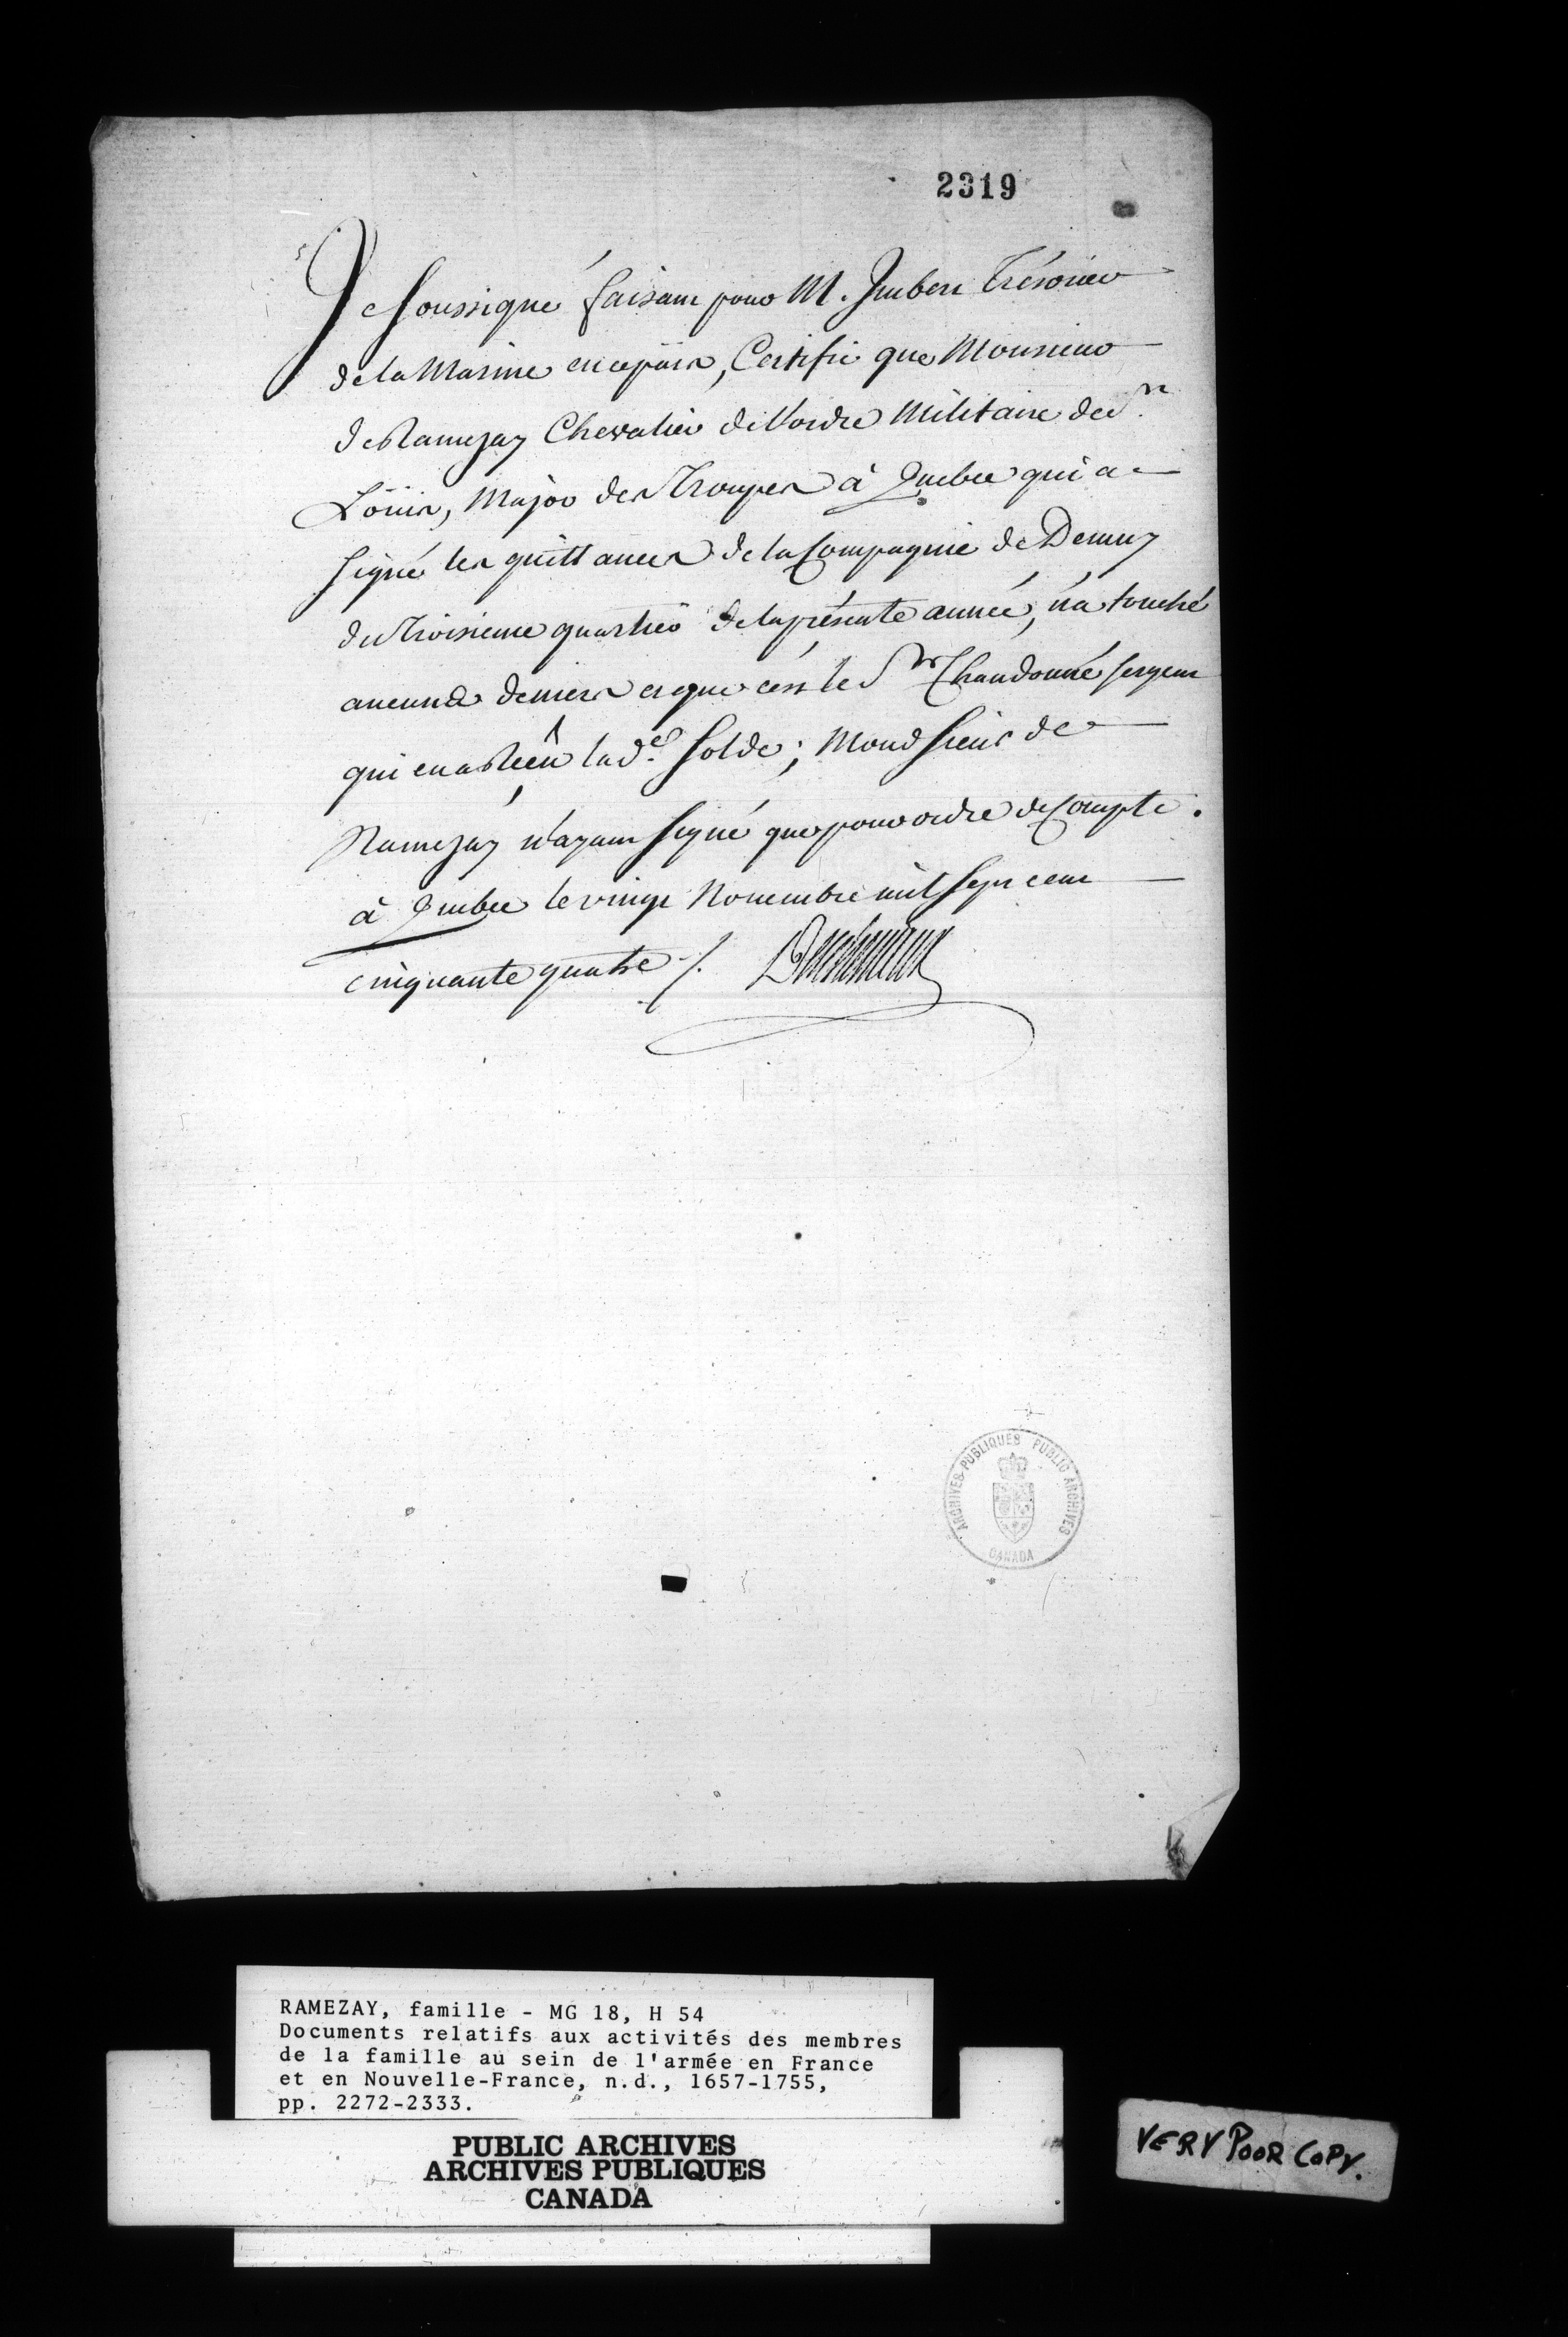 2319
Je soussigné faisant pour M. Imbert Trésorier
de la Marine en ce païs, Certifie que Monsieur
de Ramezay Chevalier de l'ordre Militaire de St
Loüis, Major des Troupes à Quebec qui a
signé les quittances de la Compagnie de Demuy
du Troisieme quartier de la présente année, n'a touché
aucuns deniers et que c'est le Sr Chaudonné sergent
qui en a Reçû lad.e solde; Mond Sieur de
Ramezay n'ayant signé que pour ordre de Compte.
à Quebec le vingt Novembre mil sept cent
cinquante quatre ./.
ARCHIVES PUBLIQUES PUBLIC ARCHIVES
CANADA
RAMEZAY, famille - MG 18, H 54
Documents relatifs aux activités des membres
de la famille au sein de l'armée en France
et en Nouvelle-France, n.d., 1657-1755,
pp. 2272-2333.
PUBLIC ARCHIVES
ARCHIVES PUBLIQUES
CANADA
VERY POOR COPY.